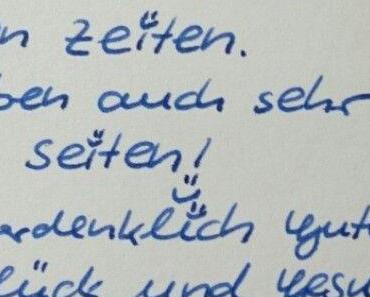 n Zeiten.
ben auch sehr
seiten!
ardenklich gut
lück und gesu